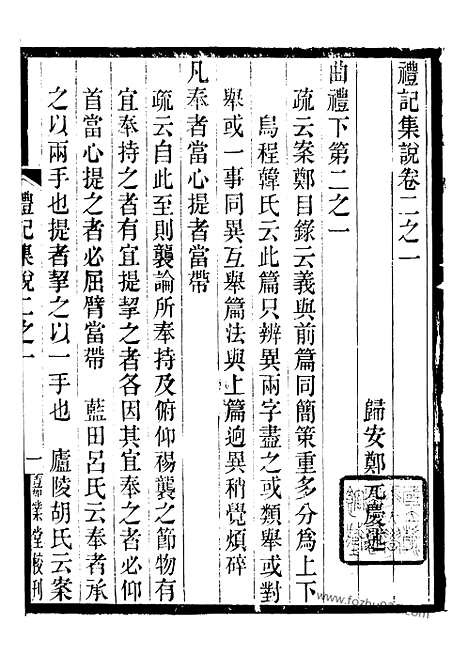 禮記集說卷二之一
歸安鄭元慶述
曲禮下第二之一
疏云案鄭目錄云義與前篇同簡策重多分為上下
烏程韓氏云此篇只辨異兩字盡之或類舉或對
舉或一事同異互舉篇法與上篇迥異稍覺煩碎
凡奉者當心提者當帶
疏云自此至則襲論所奉持及俯仰裼襲之節物有
宜奉持之者有宜提挈之者各因其宜奉之者必仰
首當心提之者必屈臂當帶　藍田呂氏云奉者承
之以兩手也提者挈之以一手也　廬陵胡氏云案
禮記集說二之一
一
嘉業堂校刊
www.fozhu920.com